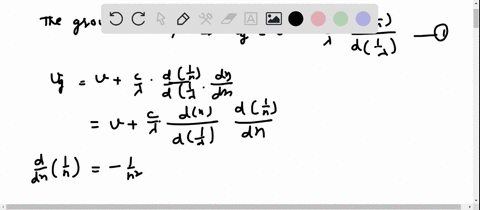 The grou
λ d(1/λ) — ①
Vg = v + c/λ · d(1/n)/d(1/λ) · dn/dn
= v + c/λ · d(n)/d(1/λ) d(1/n)/dn
d/dn (1/n) = - 1/n²